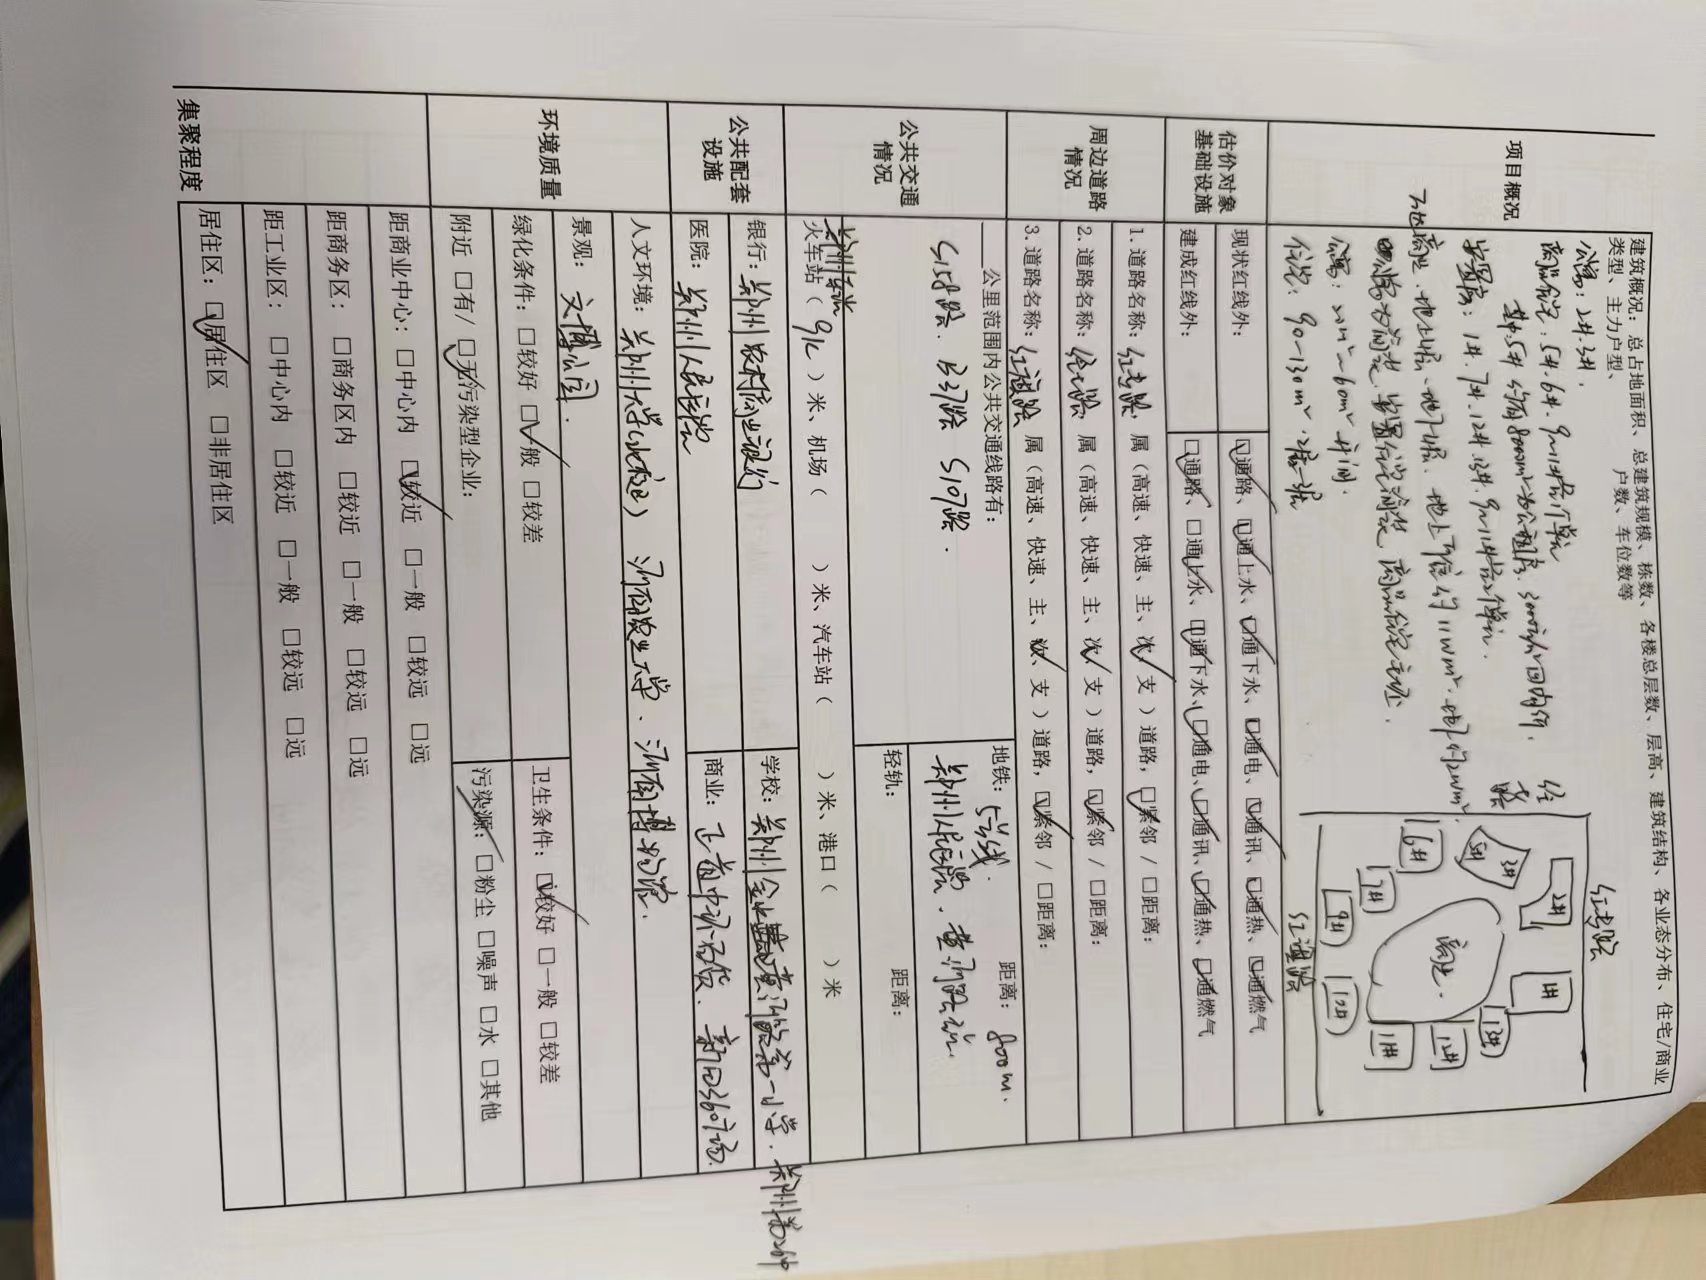 项目概况
建筑概况：总占地面积、总建筑规模、栋数、各楼总层数、层高、建筑结构、各业态分布、住宅/商业
类型、主力户型、 户数、车位数等
公寓：2#.3#.
商品住宅：5#.6#.9~11#
其中.5# 约有8000m²为公租房.
安置房：1#.7#.12#.13#.
公寓：
60m² 开间.
住宅：90-130m².
红专路
经
路
红旗路
2#
3#
5#
6#
7#
9#
10#
11#
12#
13#
1#
商业.
估价对象
基础设施
现状红线外： 通路、通上水、通下水、通电、通讯、通热、通燃气
建成红线外： 通路、通上水、通下水、通电、通讯、通热、通燃气
周边道路
情况
1. 道路名称：红专路. 属（高速、快速、主、次、支）道路，□紧邻 / □距离：
2. 道路名称：经三路. 属（高速、快速、主、次、支）道路，□紧邻 / □距离：
3. 道路名称：红旗路 属（高速、快速、主、次、支）道路，□紧邻 / □距离：
公共交通
情况
公里范围内公共交通线路有：
S158路. B37路 S107路.
地铁：5号线. 距离：800m.
郑州人民医院. 黄河路站.
轻轨： 距离：
郑州东站
火车站（9k）米、机场（ ）米、汽车站（ ）米、港口（ ）米
公共配套
设施
银行：郑州农村商业银行
学校：郑州金水区黄河路第一小学. 郑州第26中
医院：郑州人民医院
商业：正道中环百货. 新田360广场.
环境质量
人文环境：郑州大学(北校区) 河南农业大学. 河南博物院.
景观：文博公园.
绿化条件：□较好 □一般 □较差
卫生条件：□较好 □一般 □较差
附近 □有/ □无污染型企业：
污染源：□粉尘 □噪声 □水 □其他
集聚程度
距商业中心：□中心内 □较近 □一般 □较远 □远
距商务区：□商务区内 □较近 □一般 □较远 □远
距工业区：□中心内 □较近 □一般 □较远 □远
居住区：□居住区 □非居住区